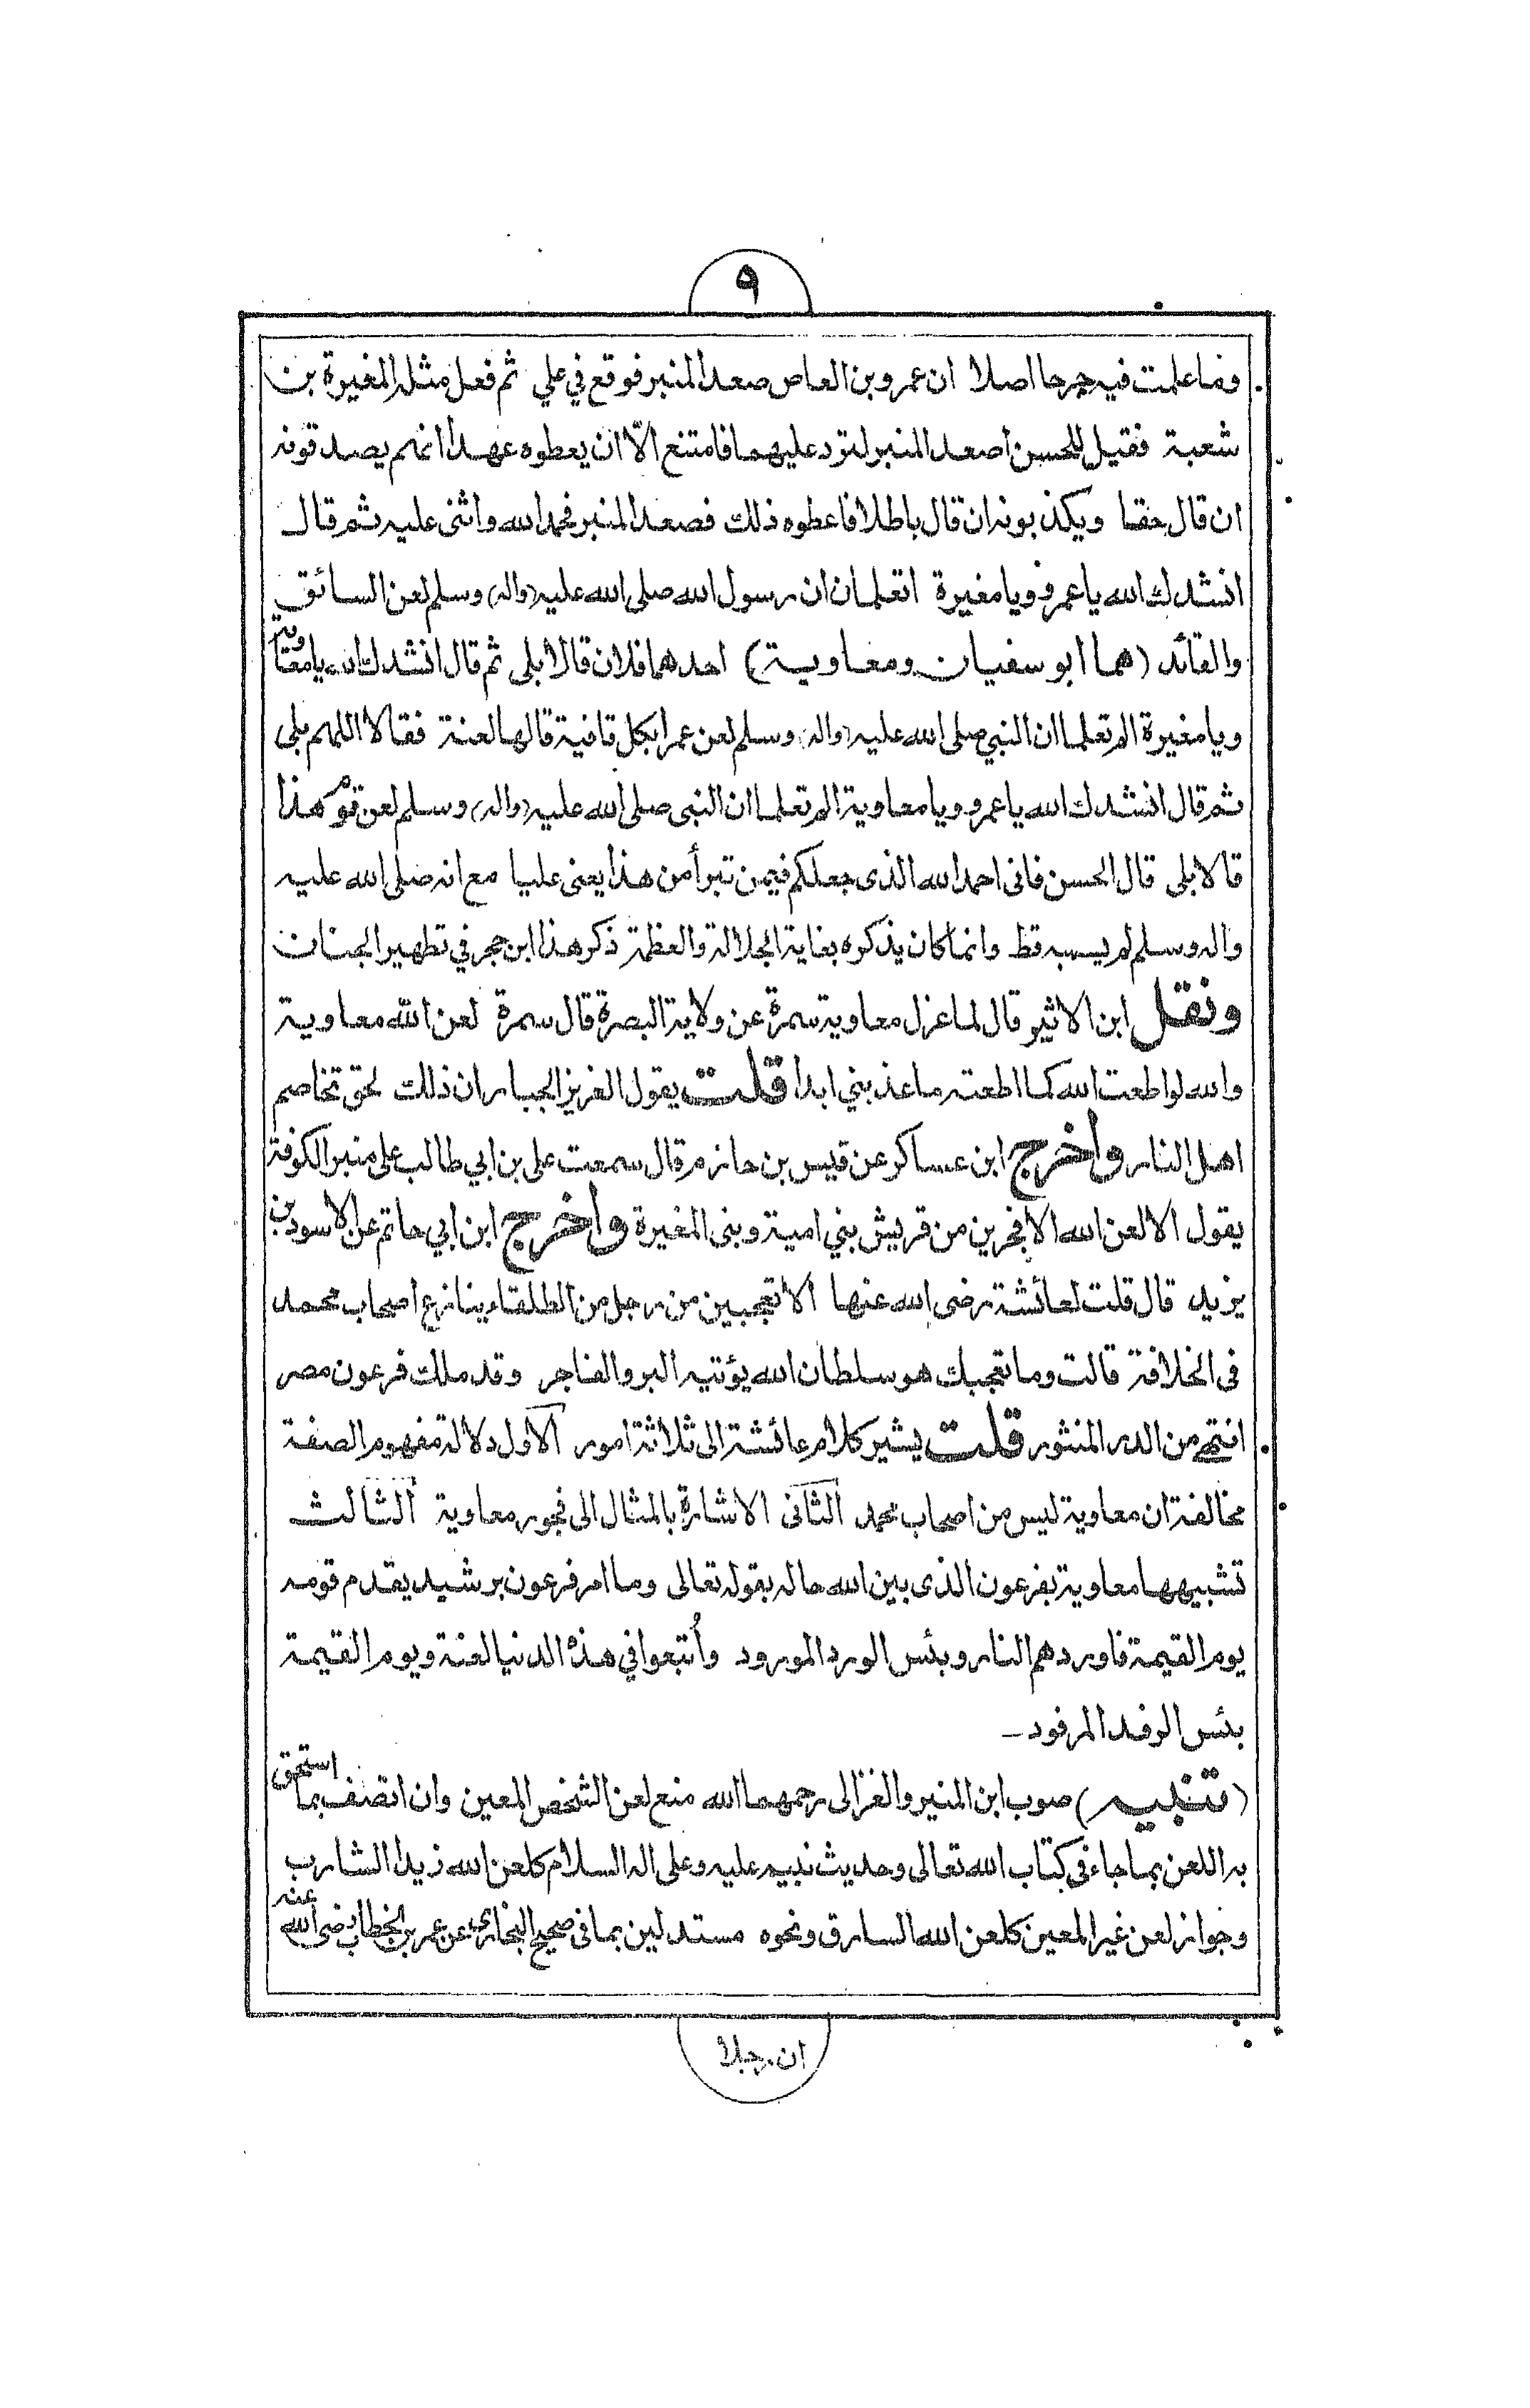 ٩
وما علمت فيه جرحا اصلا ان عمرو بن العاص صعد المنبر فوقع في علي ثم فعل مثله المغيرة بن
شعبة فقيل للحسن أصعد المنبر لترد عليهما فامتنع الّا ان يعطوه عهدا انهم يصدقونه
ان قال حقا ويكذبونه ان قال باطلا فاعطوه ذلك فصعد المنبر فحمد الله واثنى عليه ثم قال
انشدك الله يا عمرو ويا مغيرة اتعلمان ان رسول الله صلى الله عليه (واله) وسلم لعن السائق
والقائد (هما ابو سفيان ومعاوية) احدهما فلان قالا بلى ثم قال انشدك الله يا معاوية
ويا مغيرة الم تعلما ان النبي صلى الله عليه (واله) وسلم لعن عمرا بكل قافية قالها لعنة فقالا اللهم بلى
ثم قال انشدك الله يا عمرو ويا معاوية الم تعلما ان النبي صلى الله عليه (واله) وسلم لعن قوم هذا
قالا بلى قال الحسن فاني احمد الله الذى جعلكم فيمن تبرأ من هذا يعنى عليا مع انه صلى الله عليه
واله وسلم لم يسبه قط وانما كان يذكره بغاية الجلالة والعظمة ذكر هذا ابن حجر في تطهير الجنان
ونقل ابن الاثير قال لما عزل معاوية سمرة عن ولاية البصرة قال سمرة لعن الله معاوية
والله لو اطعت الله كما اطعته ما عذبني ابدا قلت يقول العزيز الجبار ان ذلك لحق تخاصم
اهل النار واخرج ابن عساكر عن قيس بن حازم قال سمعت على بن ابي طالب على منبر الكوفة
يقول الا لعن الله الافجرين من قريش بني امية وبنى المغيرة واخرج ابن ابي حاتم عن الاسود بن
يزيد قال قلت لعائشة رضى الله عنها الا تعجبين من رجل من الطلقاء ينازع اصحاب محمد
فى الخلافة قالت وما تعجبك هو سلطان الله يؤتيه البر والفاجر وقد ملك فرعون مصر
انتهى من الدر المنثور قلت يشير كلام عائشة الى ثلاثة امور الاول دلالة مفهوم الصفة
مخالفة ان معاوية ليس من اصحاب محمد الثانى الاشارة بالمثال الى فجور معاوية الثالث
تشبيهها معاوية بفرعون الذى بين الله حاله بقوله تعالى وما امر فرعون برشيد يقدم قومه
يوم القيمة فاوردهم النار وبئس الورد المورود وأتبعوا في هذه الدنيا لعنة ويوم القيمة
بئس الرفد المرفود ــ
(تنبيه) صوب ابن المنير والغزالى رحمهما الله منع لعن الشخص المعين وان اتصف بما استحق
به اللعن بما جاء فى كتاب الله تعالى وحديث نبيه عليه وعلى اله السلام كلعن الله زيدا الشارب
وجواز لعن غير المعين كلعن الله السارق ونحوه مستدلين بما فى صحيح البخارى عن عمر بن الخطاب رضى الله عنه
ان رجلا